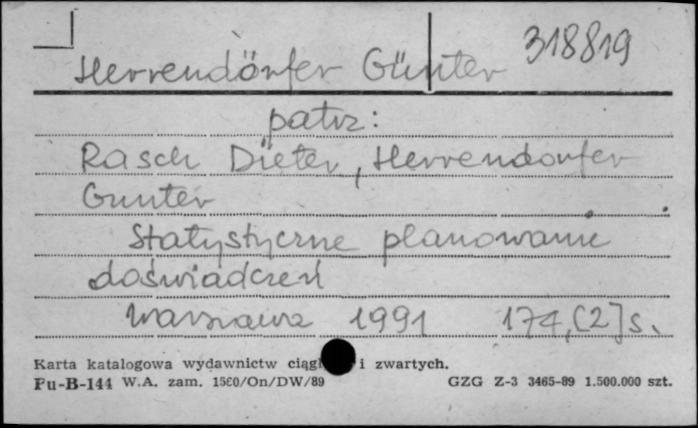 318819
Herrendörfer Günter
patrz:
Rasch Dieter, Herrendorfer
Gunter
Statystyczne planowanie
doświadczeń
Warszawa 1991 174,[2]s.
Karta katalogowa wydawnictw ciągł i zwartych.
Pu-B-144 W.A. zam. 1560/On/DW/89 GZG Z-3 3465-89 1.500.000 szt.